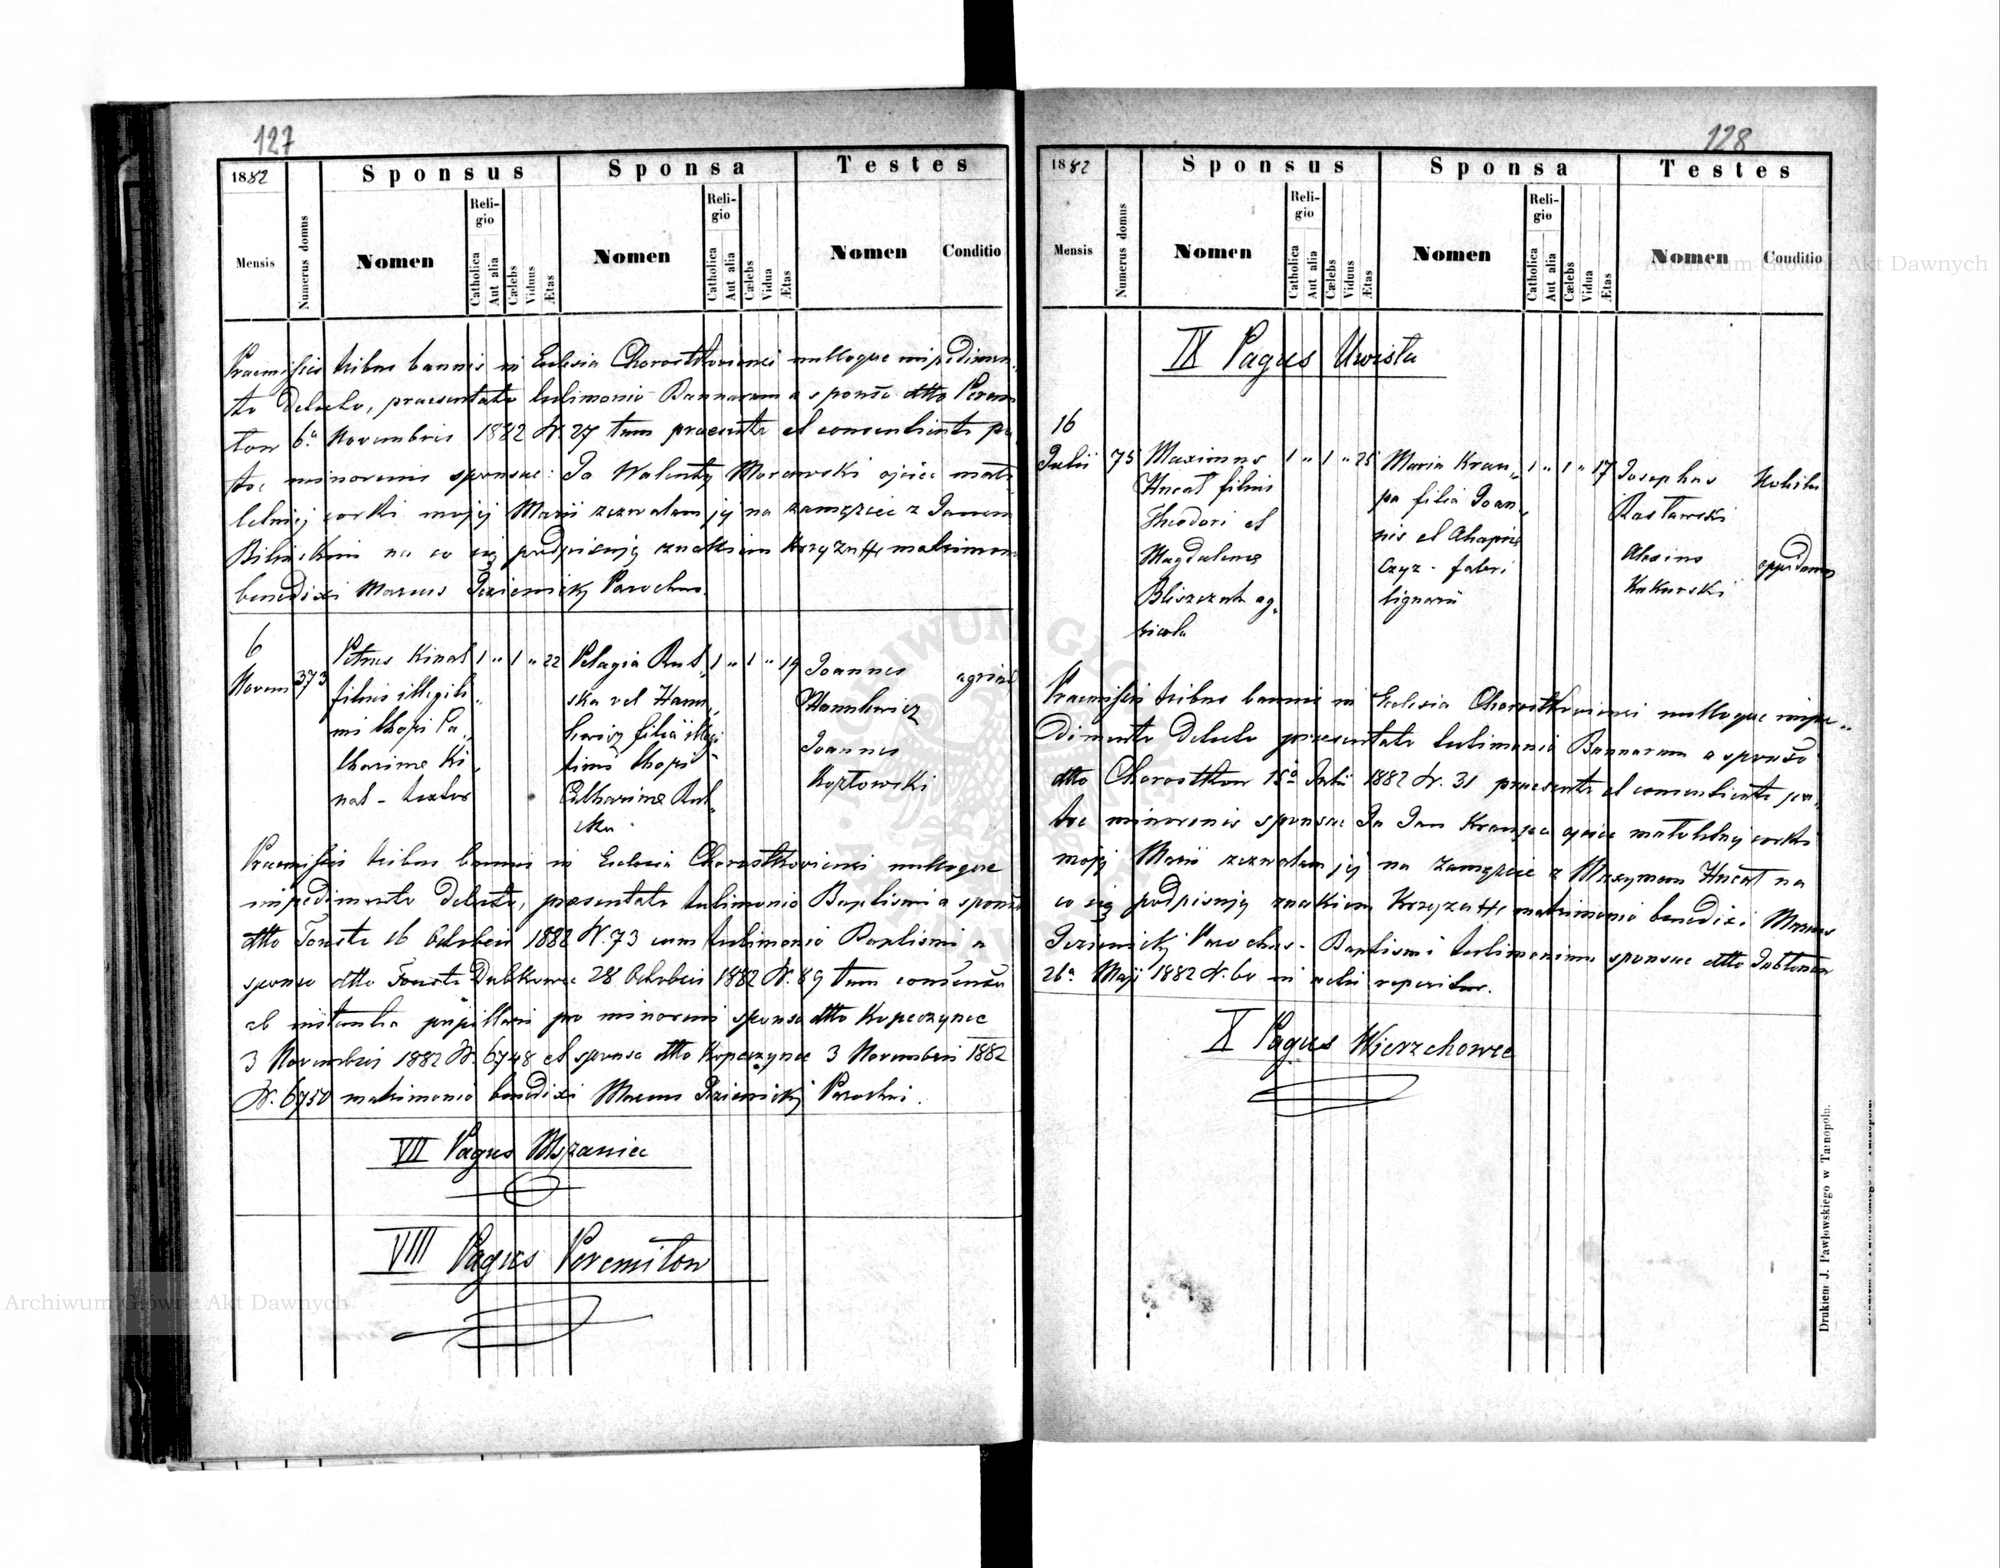 127
1882
Sponsus
Sponsa
Testes
Mensis
Numerus domus
Nomen
Religio
Catholica
Aut alia
Cælebs
Viduus
Ætas
Nomen
Religio
Catholica
Aut alia
Cælebs
Vidua
Ætas
Nomen
Conditio
Praemissis tribus bannis in Eclesia Chorostkoviensi nulloque impedimen
to detecto, praesentato testimonio Bannorum a sponso dtto Perem
ton 6a Novembris 1882 N. 27 tum praesente et consentiente pa
tre minorenis sponsae: Ja Walenty Morawski ojciec mało
letniej corki mojej Marii zezwalam jej na zamęźcie z Janem
Bilinskim na co się podpisuję znakiem Krzyża ++ matrimon
benedixi Marcus Parochus.
6
Novem
373
Petrus Kinal
filius illegiti
mi thori Ca
tharinae Ki
nal - textor
1 " 1 " 22
Pelagia Rud
ska vel Hann
kewicz filia illegi
timi thori
Catharinae Rud
ska
1 " 1 " 19
Joannes
Hannkewicz
Joannes
Kozłowski
agricol
Praemissis tribus bannis in Eclesia Chorostkoviensi nulloque
impedimento detecto, praesentato testimonio Baptismi a sponso
dtto Touste 16 Octobris 1882 N. 73 cum testimonio Baptismi a
sponsa dtto Touste Dubkowce 28 Octobris 1882 N. 89 tum consensu
ab instantia pupillari pro minoreni sponso dtto Kopeczynce
3 Novembris 1882 N. 6748 et sponsa dtto Kopeczynce 3 Novembris 1882
N. 6750 matrimonio benedixi Marcus Parochus.
VII Pagus Mszaniec
VIII Pagus Peremilow
128
1882
Sponsus
Sponsa
Testes
Mensis
Numerus domus
Nomen
Religio
Catholica
Aut alia
Cælebs
Viduus
Ætas
Nomen
Religio
Catholica
Aut alia
Cælebs
Vidua
Ætas
Nomen
Conditio
IX Pagus Uwisla
16
Julii
75
Maximus
Hucał filius
Theodori et
Magdalenae
Bliszczak ag
ricola
1 " 1 " 25
Maria Krau
pa filia Joan
nis et Ahapiae
Czyz - fabri
lignarii
1 " 1 " 17
Josephus
Rosławski
Alexius
Kukurski
Nobilis
oppidanus
Praemissis tribus bannis in Eclesia Chorostkoviensi nulloque impe
dimento detecto praesentato testimonio Bannorum a sponso
dtto Chorostkow 15a Julii 1882 N. 31 praesente et consentiente pa
tre minorenis sponsae Ja Jan Kraupa ojciec małoletniej corki
mojej Marii zezwalam jej na zamęźcie z Maxymem Hucał na
co się podpisuję znakiem Krzyża ++ matrimonio benedixi Marcus
Parochus - Baptismi testimonium sponsae dtto Jabłonow
26a Maji 1882 N. 60 in actis reperitur.
X Pagus Wierzchowce
Drukiem J. Pawłowskiego w Tarnopolu.
Archiwum Główne Akt Dawnych
Archiwum Główne Akt Dawnych